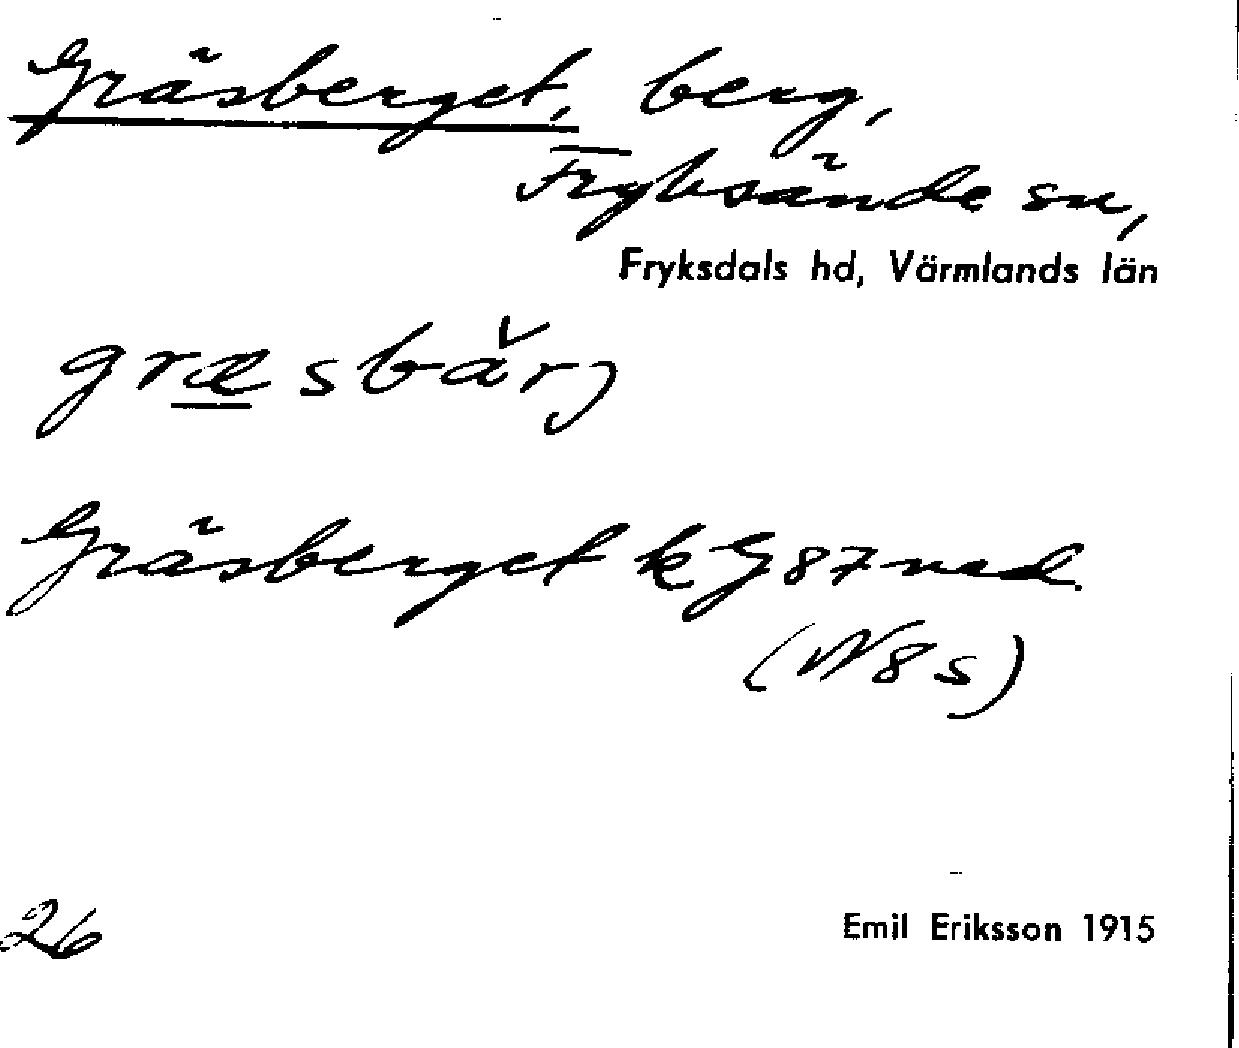 Gräsberget, berg,
Fryksände sn,
Fryksdals hd, Värmlands län
græsbårj
Gräsberget k G87 nsd.
(N8s)
26
Emil Eriksson 1915